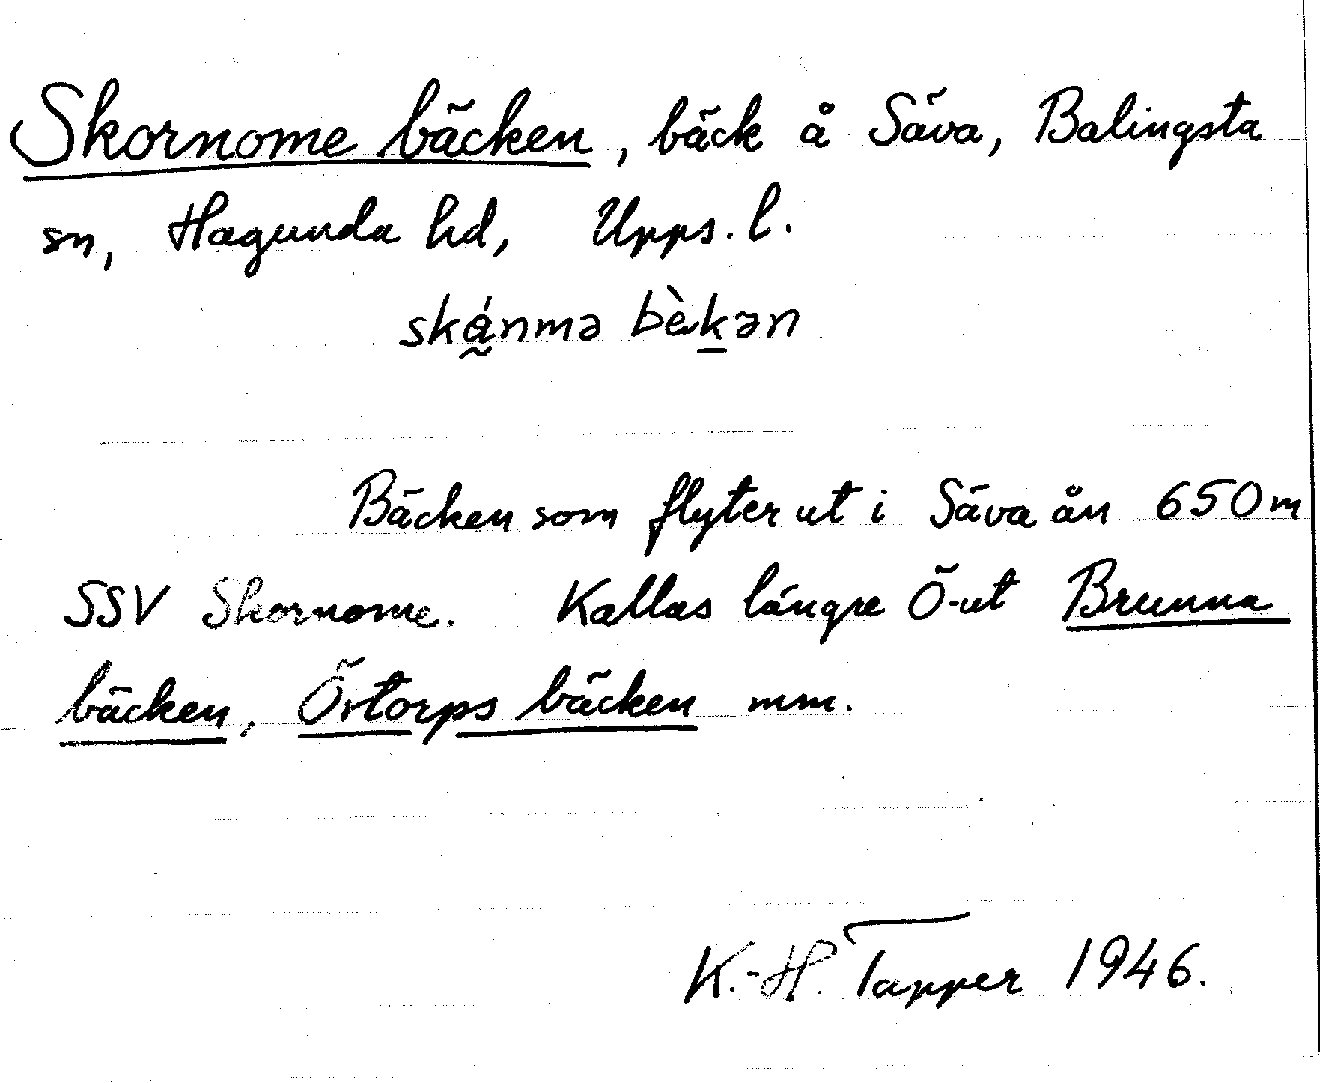 Skornome bäcken, bäck å Säva, Balingsta
sn, Hagunda hd, Upps. l.
ská̰nmə bèḵən
Bäcken som flyter ut i Säva ån 650 m
SSV Skornome. Kallas längre Ö-ut Brunna
bäcken, Övtorps bäcken mm.
K.-H. Tapper 1946.